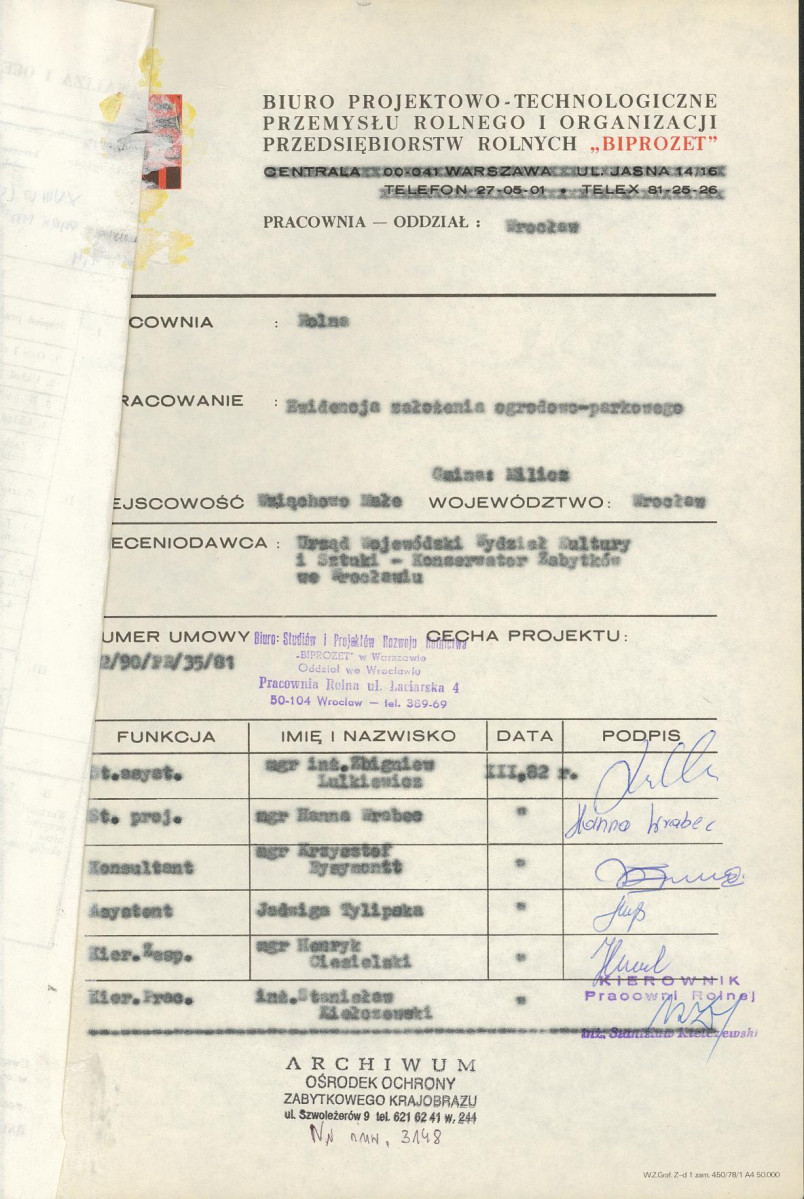 BIURO PROJEKTOWO-TECHNOLOGICZNE
PRZEMYSŁU ROLNEGO I ORGANIZACJI
PRZEDSIĘBIORSTW ROLNYCH „BIPROZET”
CENTRALA 00-041 WARSZAWA UL. JASNA 14/16
TELEFON 27-05-01 • TELEX 81-25-26
PRACOWNIA — ODDZIAŁ : Wrocław
COWNIA : Rolna
RACOWANIE : Ewidencja założenia ogrodowo-parkowego
Gmina: Milicz
EJSCOWOŚĆ Wziąchowo Małe WOJEWÓDZTWO: Wrocław
ECENIODAWCA : Urząd Wojewódzki Wydział Kultury
i Sztuki - Konserwator Zabytków
we Wrocławiu
UMER UMOWY CECHA PROJEKTU:
2/90/PR/35/81
Biuro: Studiów i Projektów Rozwoju Rolnictwa
„BIPROZET" w Warszawie
Oddział we Wrocławiu
Pracownia Rolna ul. Łaciarska 4
50-104 Wrocław — tel. 389-69
FUNKCJA IMIĘ I NAZWISKO DATA PODPIS
St.asyst. mgr inż.Zbigniew III.82 r.
Lulkiewicz
St. proj. mgr Hanna Wrabec " Hanna Wrabec
Konsultant mgr Krzysztof "
Eysymontt
Asystent Jadwiga Tylipska "
Kier.Zesp. mgr Henryk "
Ciesielski
Kier.Prac. inż.Stanisław "
Kiełczewski
KIEROWNIK
Pracowni Rolnej
inż. Stanisław Kiełczewski
ARCHIWUM
OŚRODEK OCHRONY
ZABYTKOWEGO KRAJOBRAZU
ul. Szwoleżerów 9 tel. 621 62 41 w. 244
3148
W.Z.Graf. Z-d 1 zam. 450/78/1 A4 50.000